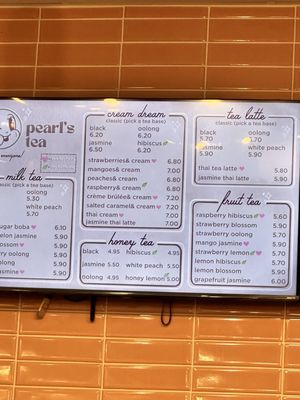 pearl's
tea
milk tea
classic (pick a tea base)
oolong
5.30
white peach
5.70
sugar boba ♥ 6.30
melon jasmine 5.90
5.90
jasmine ♥ 5.90
oolong 5.90
5.90
cream dream
classic (pick a tea base)
black oolong
6.20 6.20
jasmine white peach
6.50 6.20
strawberries& cream ♥ 6.80
mangoes& cream 6.80
peaches& cream 6.80
raspberry& cream 6.80
crème brûlée& cream 7.20
salted caramel& cream 7.20
thai cream ♥ 7.00
jasmine latte 7.00
honey tea
black 4.95 hibiscus 4.95
jasmine 5.50 white peach 5.50
oolong 4.95 honey lemon 5.00
tea latte
classic (pick a tea base)
black oolong
5.70 5.70
jasmine white peach
5.90 5.90
thai tea latte ♥ 5.80
jasmine thai latte 5.90
fruit tea
raspberry hibiscus ♥ 5.60
strawberry blossom 5.90
strawberry oolong 5.70
mango jasmine ♥ 5.90
strawberry lemon ♥ 5.70
lemon hibiscus 5.70
lemon blossom 5.90
grapefruit jasmine 6.00